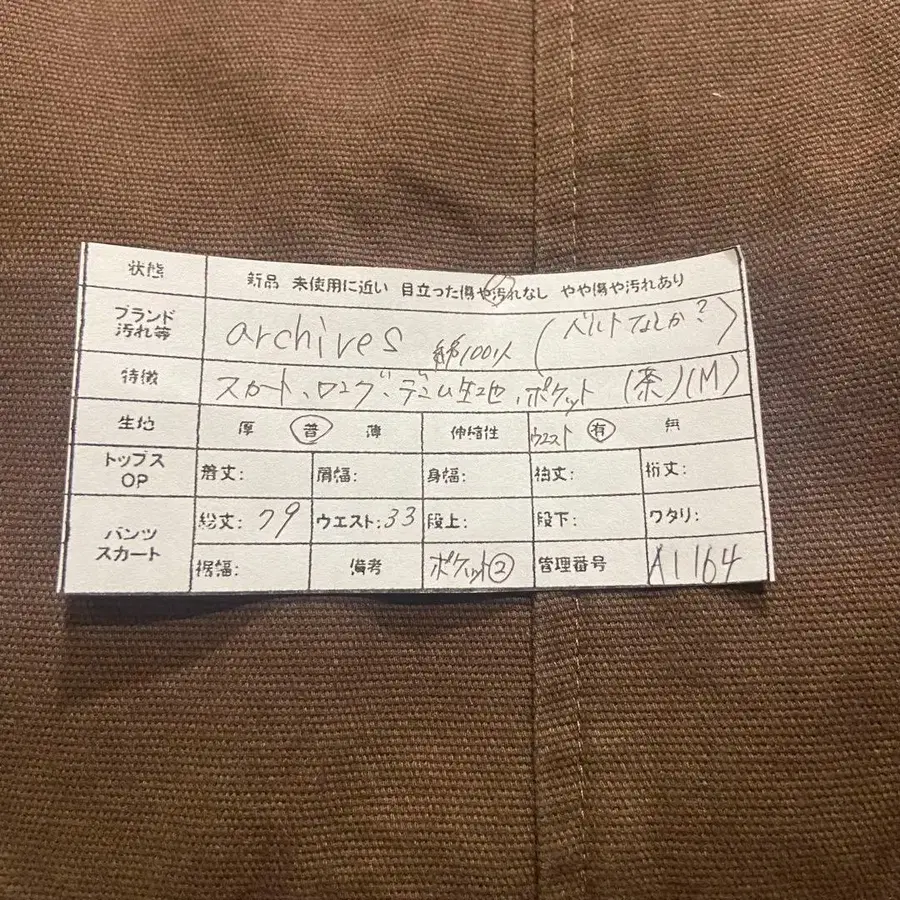 状態 新品 未使用に近い 目立った傷や汚れなし やや傷や汚れあり
ブランド 汚れ等 archives 綿100% (ベルトなしか?)
特徴 スカート、ロング、デニム生地、ポケット (茶)(M)
生地 厚 普 薄 伸縮性 ウエスト 有 無
トップス OP 着丈: 肩幅: 身幅: 袖丈: 裄丈:
パンツ スカート 総丈:79 ウエスト:33 段上: 段下: ワタリ:
裾幅: 備考 ポケット② 管理番号 A1164